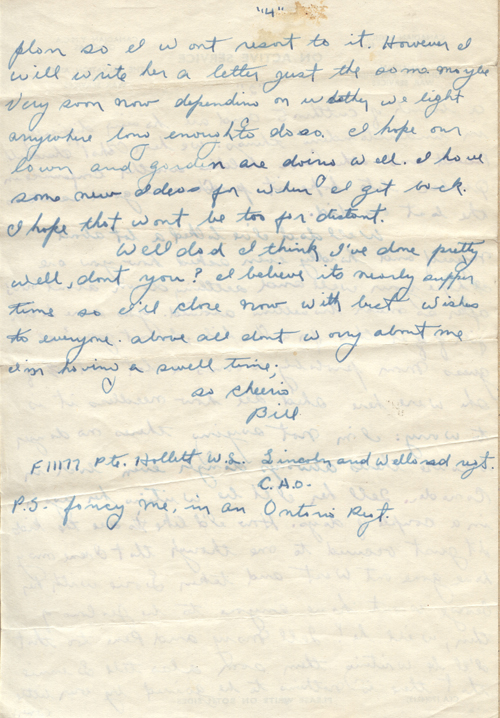 "4"
plan so I wont resort to it. However I
will write her a letter just the same maybe
very soon now depending on whether we light
anywhere long enough to do so. I hope our
lawn and garden are doing well. I have
some new ideas for when I get back.
I hope that wont be too far distant.
Well dad I think I've done pretty
well, dont you? I believe its nearly supper
time so I'll close now with best wishes
to everyone. above all dont worry about me
I'm having a swell time;
so cheerio
Bill
F.11177 Pte. Hollett W.L. Lincoln and Welland regt.
C.A.O.
P.S. fancy me, in an Ontario Regt.